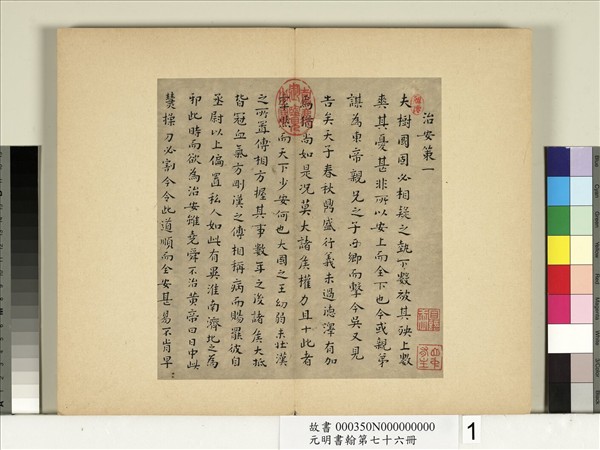 治安策一
夫樹國固必相疑之埶下數被其殃上數
爽其憂甚非所以安上而全下也今或親弟
謀為東帝親兄之子西鄉而擊今吳又見
告矣天子春秋鼎盛行義未過德澤有加
焉猶尚如是況莫大諸侯權力且十此者
乎然而天下少安何也大國之王幼弱未壯漢
之所置傅相方握其事數年之後諸侯大抵
皆冠血氣方剛漢之傅相稱病而賜罷彼自
丞尉以上偏置私人如此有異淮南濟北之為
邪此時而欲為治安雖堯舜不治黃帝曰日中必
熭操刀必割今令此道順而全安甚易不肯早
故書 000350N000000000
元明書翰第七十六冊
1